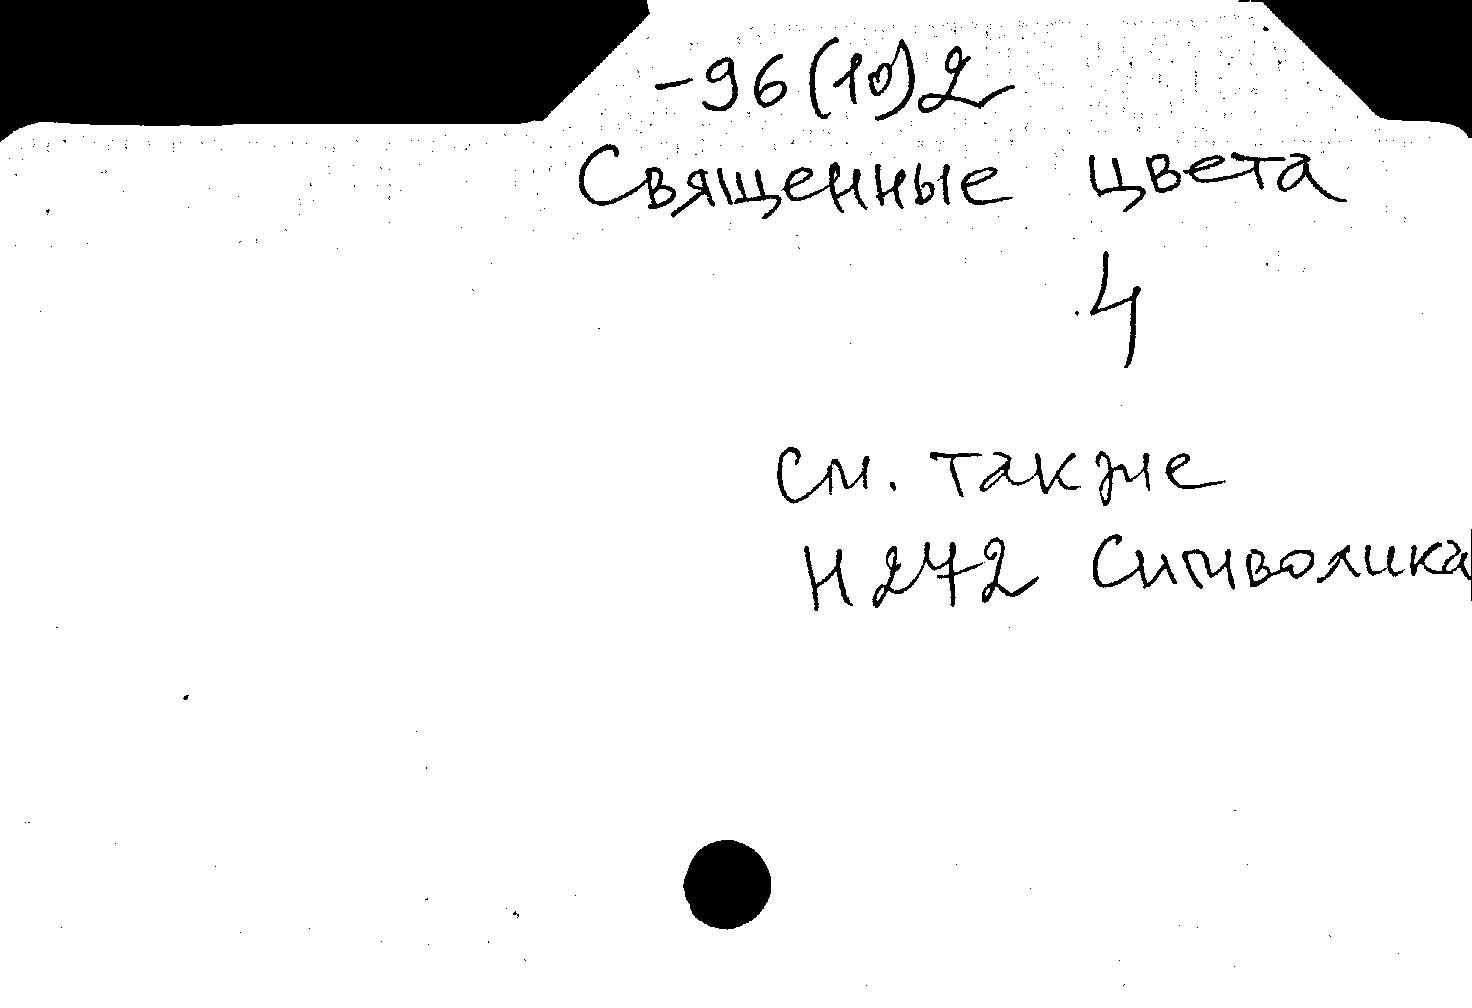 -96(10)2
Священные цвета
4
см. также
Н272 Символика